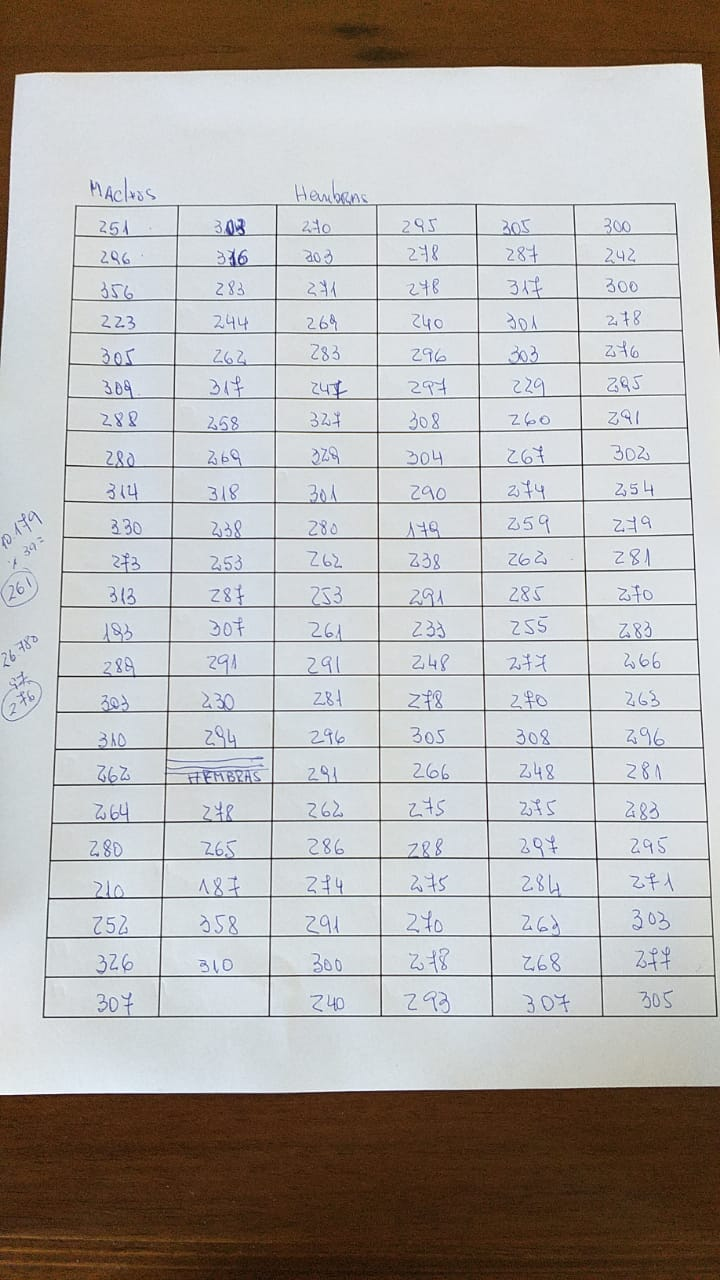 Machos Hembras
251 303 270 295 305 300
296 316 303 278 287 242
356 283 271 278 317 300
223 244 269 240 301 278
305 262 283 296 303 276
309 317 247 297 229 295
288 258 327 308 260 291
280 269 329 304 267 302
314 318 301 290 274 254
330 238 280 179 259 279
273 253 262 238 262 281
313 287 253 291 285 270
193 307 261 233 255 283
289 291 291 248 277 266
303 230 281 278 270 263
310 294 296 305 308 296
262 HEMBRAS 291 266 248 281
264 278 262 275 275 283
280 265 286 288 297 295
210 187 274 275 284 271
252 358 291 270 263 303
326 310 300 278 268 277
307 240 293 307 305
10.179
39=
261
26780
97
276